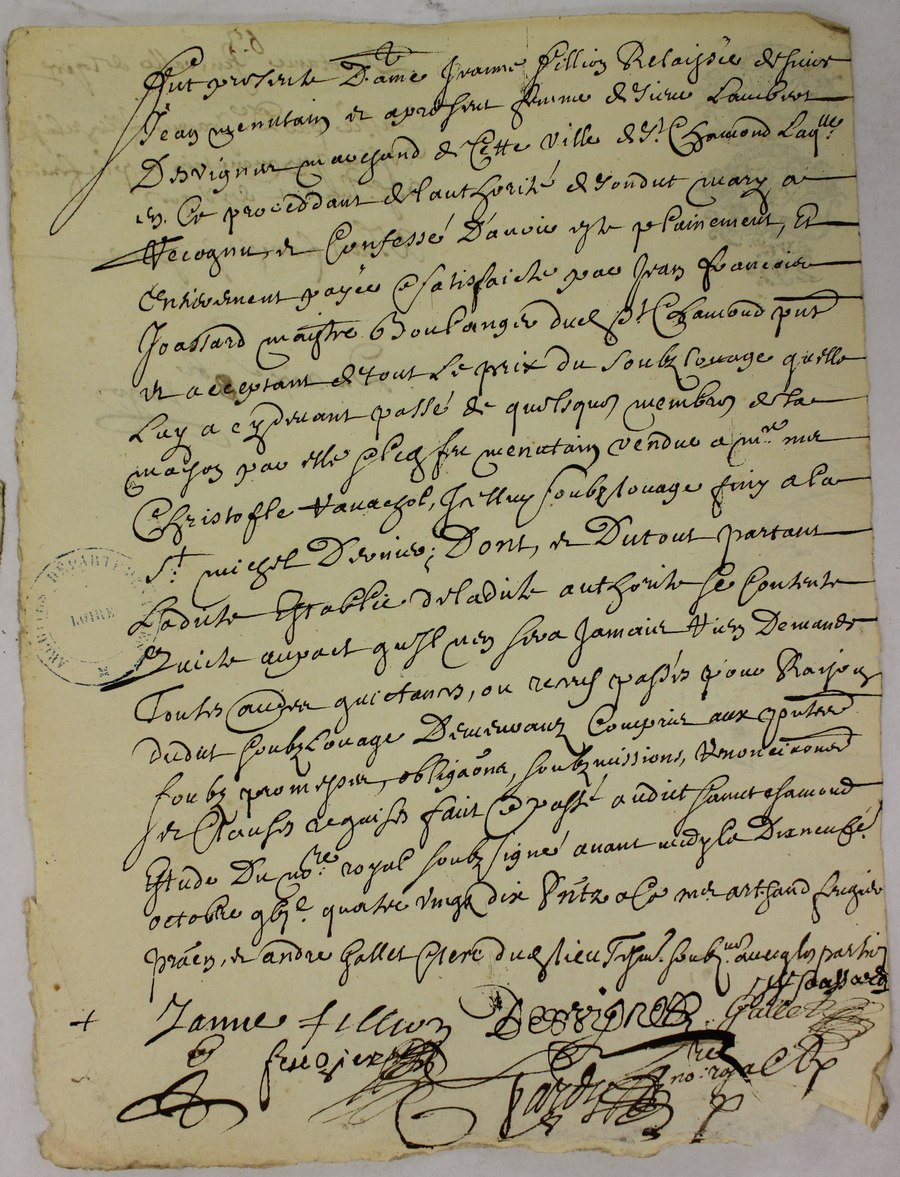 Fut presente Dame Jeanne Fillion Relaissée de sieur
Jean menutain et apresent femme de sieur Lambert
Desvignes marchand de Cette ville de St Chamond Laqlle
en Ce proceddant de lauthorité de sondit mary a
Recognu et Confessé D'avoir esté plainement, Et
Entierement payée & satisfaicte par Jean francois
Joassard maistre Boulanger dud St Chamond pnt
et acceptant de tout Le prix du soubz louage quelle
Luy a cy devant passé de quelques membres de la
maison par elle & led feu menutain vendue a mre
Christofle Ravachol, Icelluy soubz louage finy a la
St michel Dernier; Dont, et Dutout partant
Ladite Establie deladite authorite se Contente
quicte avpact quil nen sera Jamais Rien Demandé
Toutes autres quictances, ou receus passés pour Raison
dudit soubz Louage Demeurans Compris aux pntes
soubz promesses, obligaons, soubzmissions, Renonciaons
et Clauses requises faict & passé audit sainct chamond
Estude Du nore royal soubzsigné avant midy le Dixneufe
octobre gbjc quatre vingt dix pntz a Ce
praen, et andre Gallet Clerc dud lieu Tesm. soubznes avec les parties
Joassard
+ Janne fillion Desvignes Gallet
frugier
nore royal
ARCHIVES DÉPARTEMENTALES
LOIRE